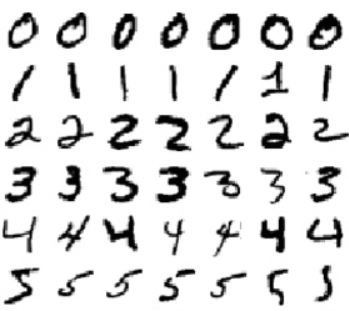 0 0 0 0 0 0 0
1 1 1 1 1 1 1
2 2 2 2 2 2 2
3 3 3 3 3 3 3
4 4 4 4 4 4 4
5 5 5 5 5 5 5